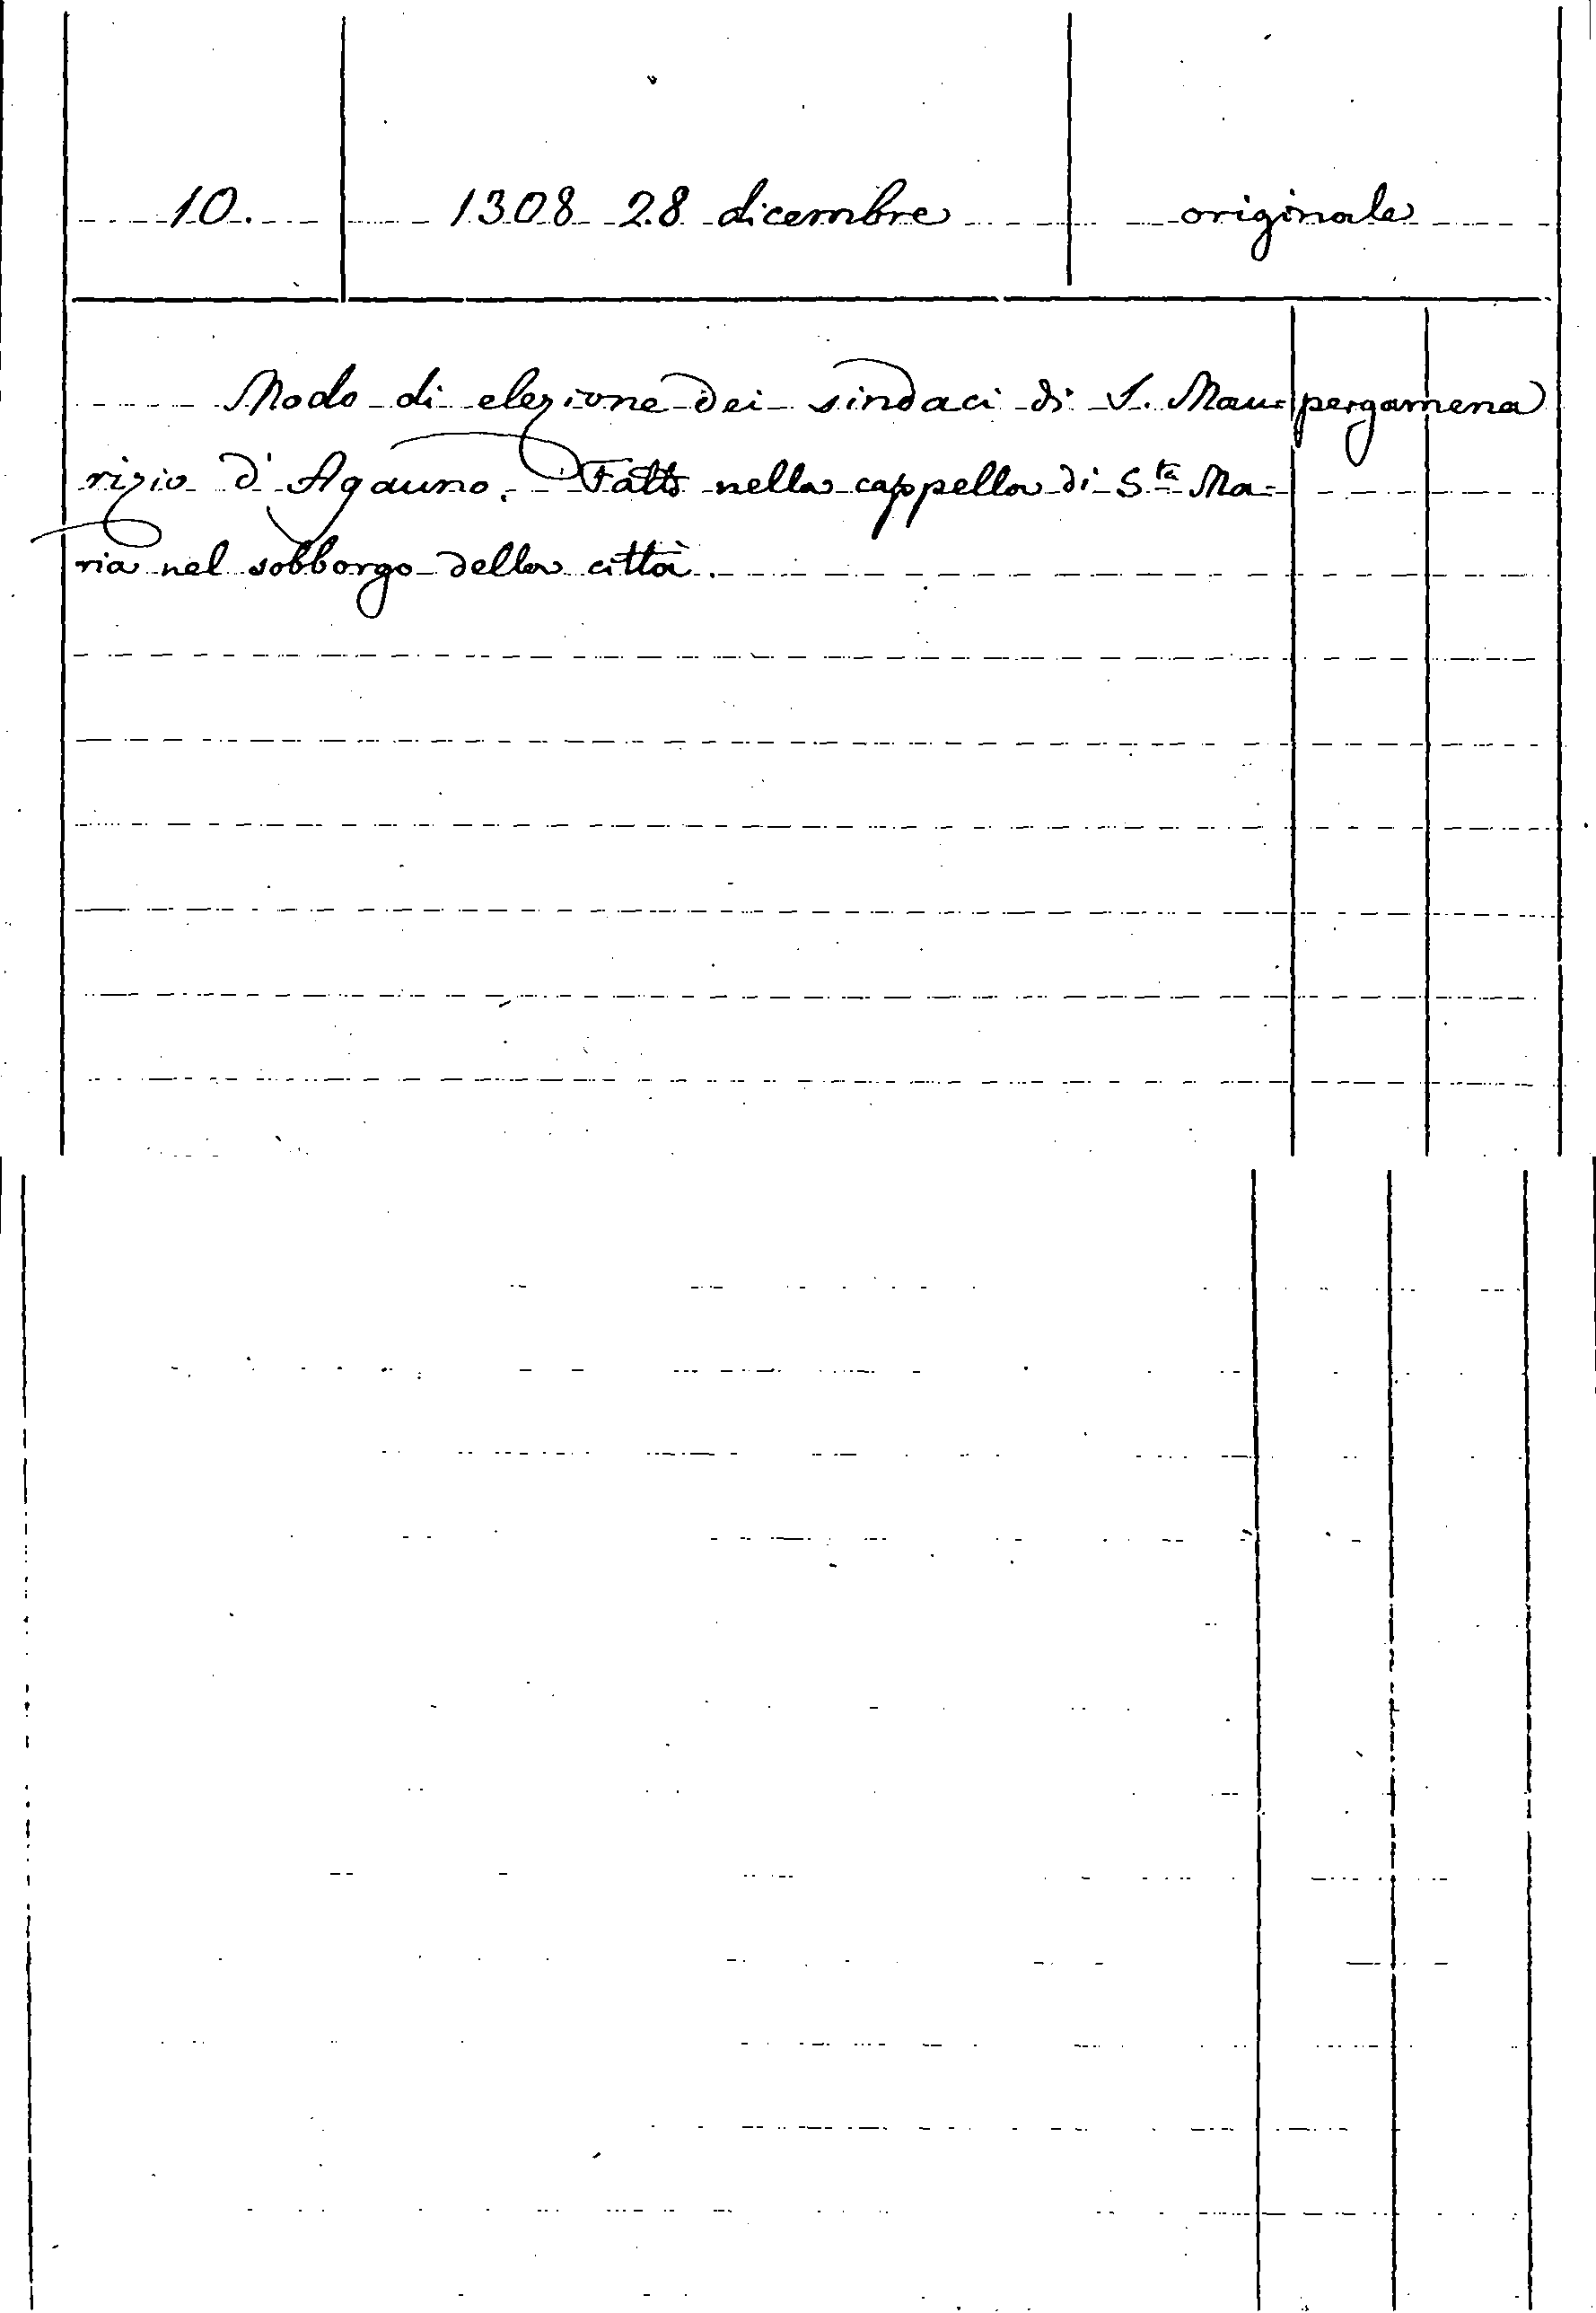 10. 1308 28 dicembre originale
Modo di elezione dei sindaci di S. Mau= pergamena
rizio d'Agauno. Fatto nella cappella di S.ta Ma=
ria nel sobborgo della città.